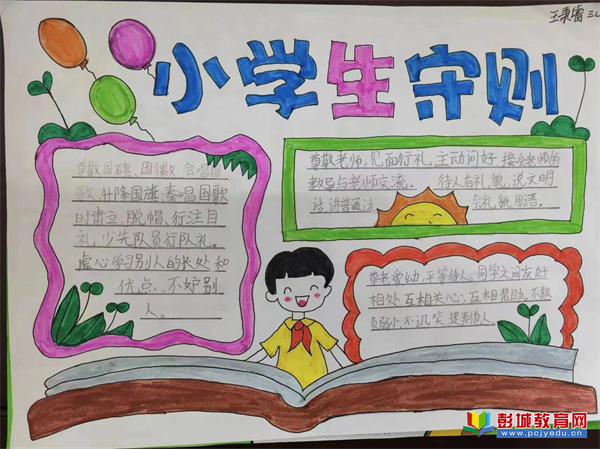 王秉睿 三
小学生守则
尊敬国旗、国徽 会唱国
歌,升降国旗、奏唱国歌
时肃立、脱帽、行注目
礼,少先队员行队礼。
虚心学习别人的长处和
优点、不妒别
人。
尊敬老师,见面行礼,主动问好,接受老师的
教导与老师交流。 待人有礼貌,说文明
话,讲普通话, 会礼貌用语。
尊老爱幼,平等待人。同学之间友好
相处,互相关心,互相帮助。不欺
负弱小,不讥笑、捉弄他人。
彭城教育网
www.pcjyedu.cn